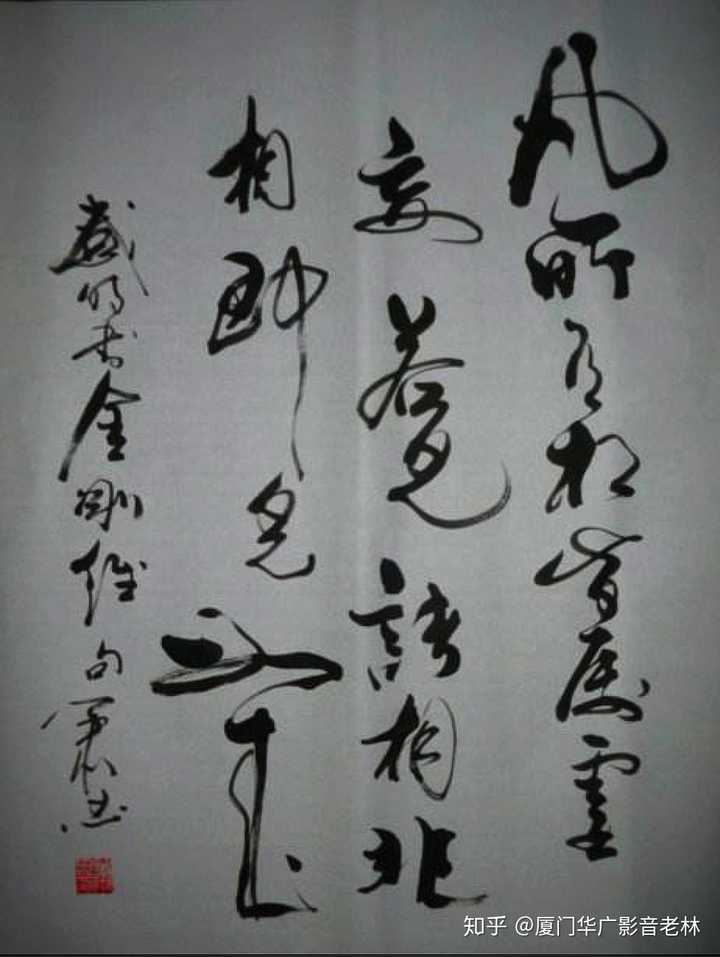 凡所有相皆属虚
妄若見諸相非
相即見如来
金剛經句
知乎 @厦门华广影音老林